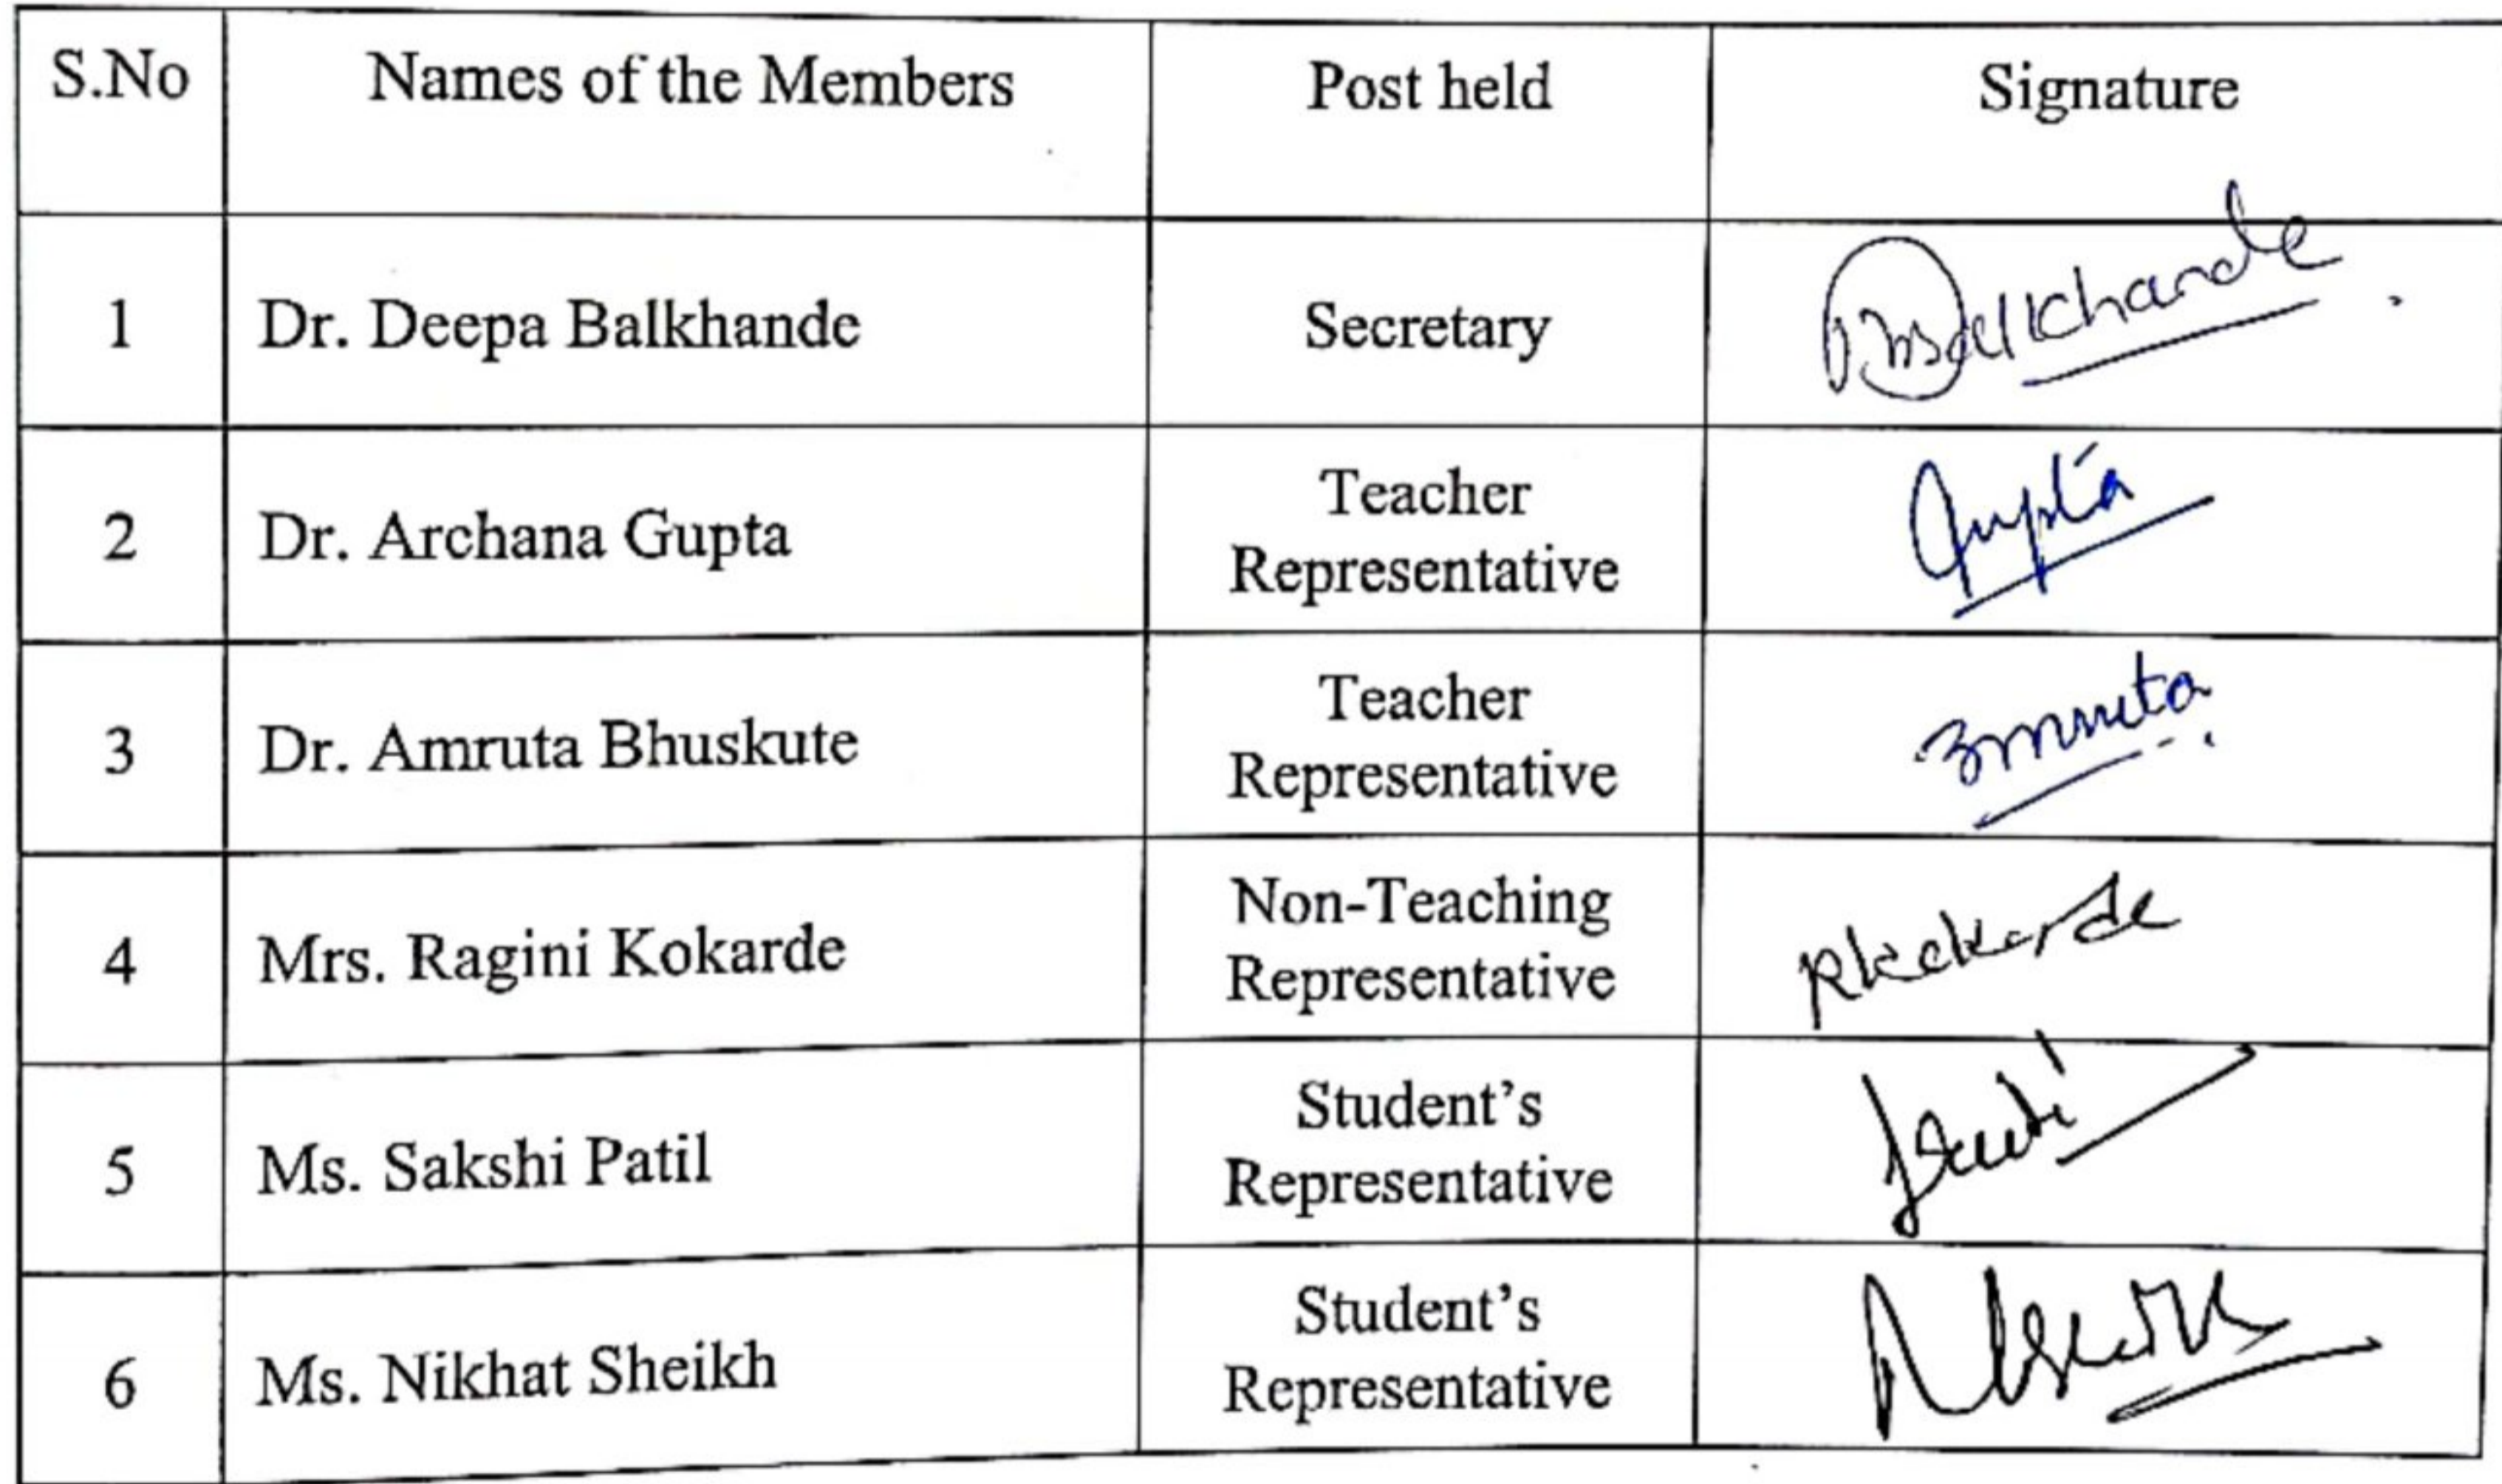 S.No Names of the Members Post held Signature
1 Dr. Deepa Balkhande Secretary Balkhande
2 Dr. Archana Gupta Teacher Representative Gupta
3 Dr. Amruta Bhuskute Teacher Representative Amruta
4 Mrs. Ragini Kokarde Non-Teaching Representative RKokarde
5 Ms. Sakshi Patil Student's Representative
6 Ms. Nikhat Sheikh Student's Representative